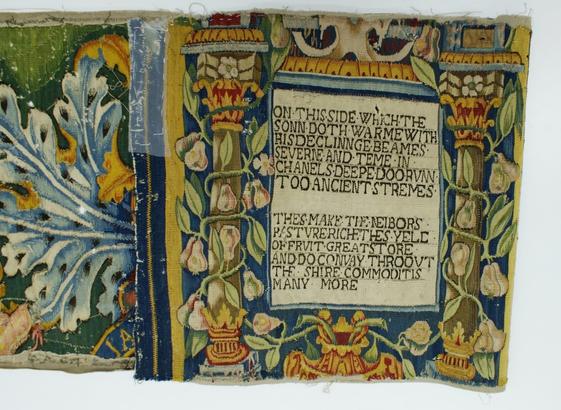 ON·THIS·SIDE·WHICH·THE
SONN·DOTH·WARME·WITH
HIS·DECLINNGE·BEAMES·
SEVERNE·AND·TEME·IN
CHANELS·DEEPE·DOO·RVNN·
TOO·ANCIENT·STREMES·
THES·MAKE·THE·NEIBORS
PASTVRE·RICHE·THES·YELD
OF·FRVIT·GREAT·STORE
AND·DO·CONVAY·THROOVT
THE·SHIRE·COMMODITIS
MANY MORE